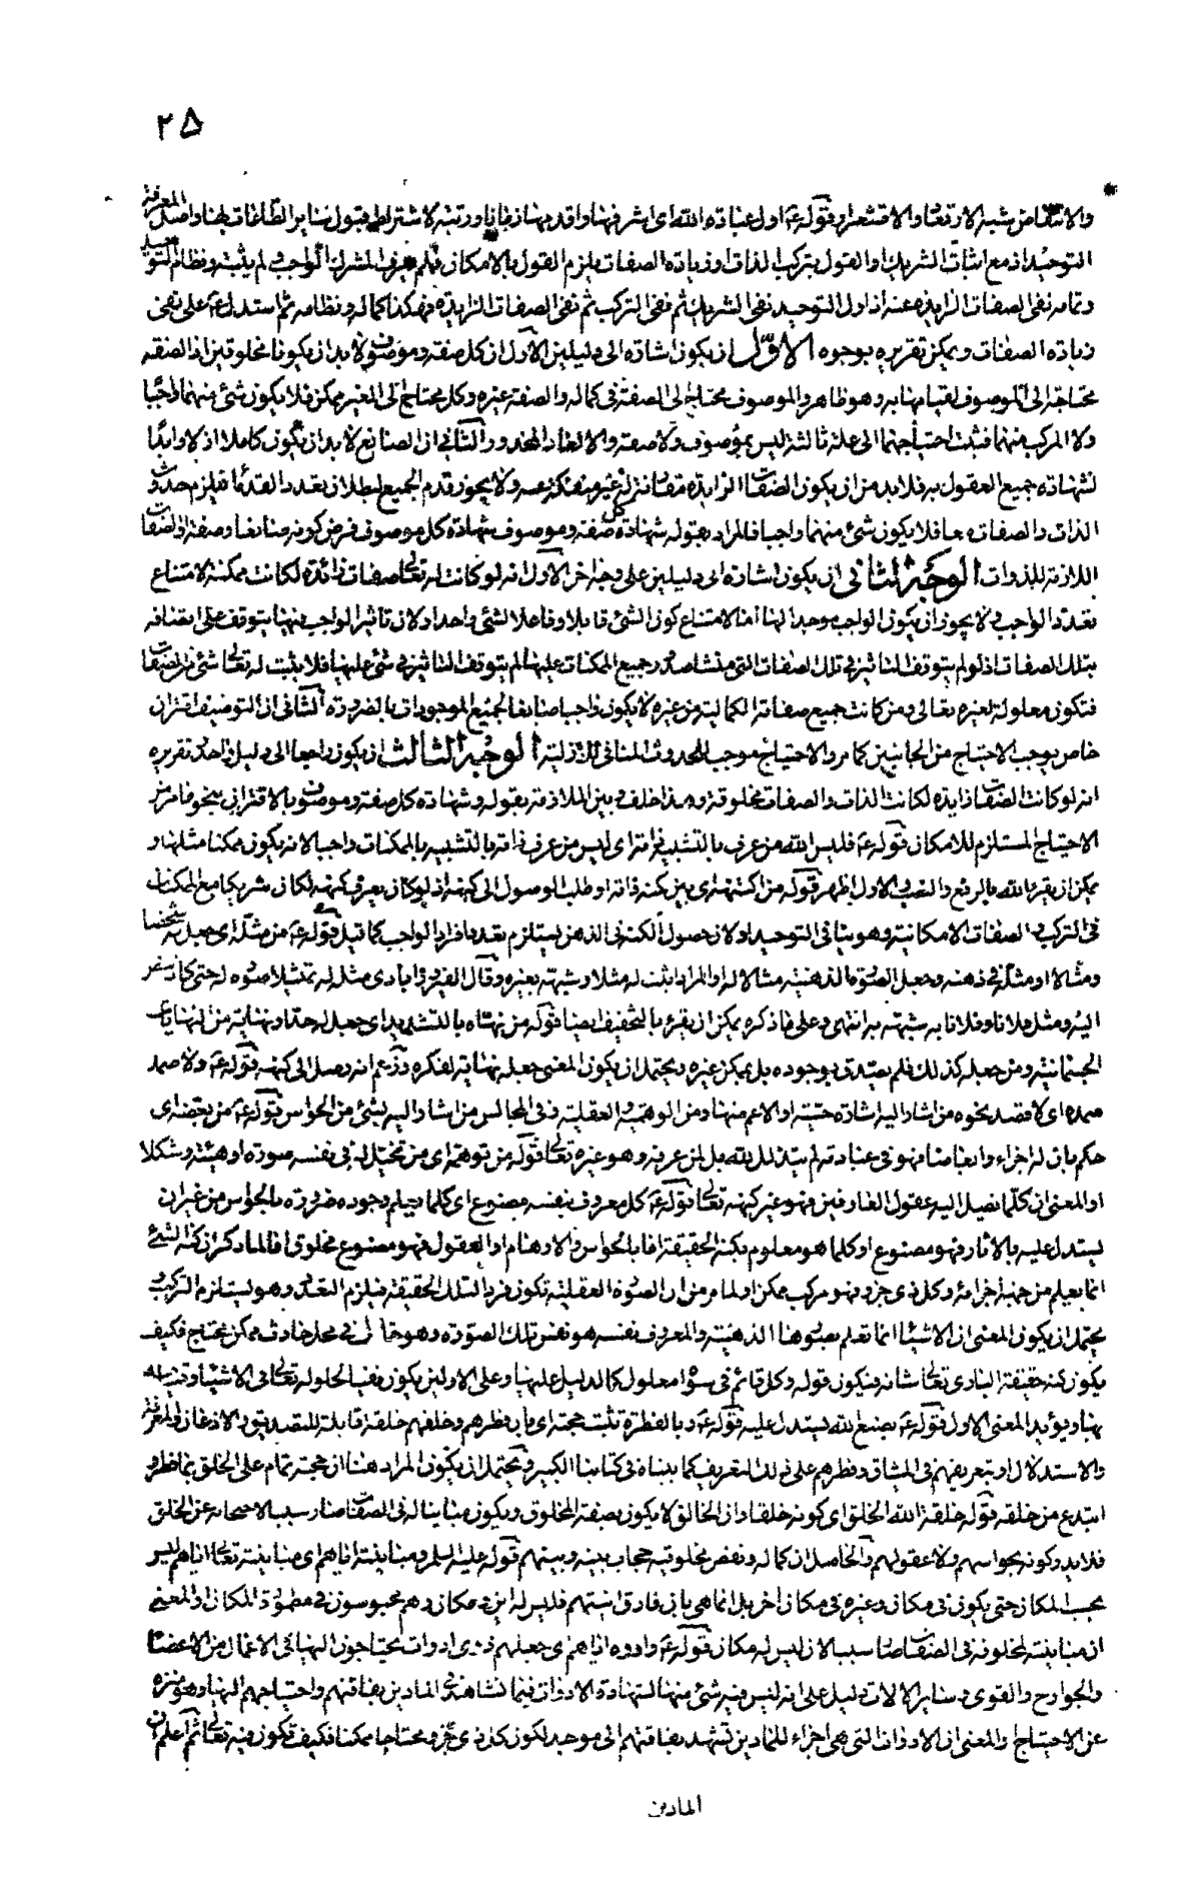 ٢٥
والانتقاض شبه الارتعاد والاقشعرار قوله ع اول عبادة الله اى اشرفها واقدمها زمانا ورتبة لاشتراط قبول ساير الطاعات بها واصل المعرفة
التوحيد اذ مع اثبات الشريك او القول بتركب الذات او زيادة الصفات يلزم القول بالامكان فلم يعرف المشرك الواجب ولم يثبته ونظام التوحيد
وتمامه نفى الصفات الزايدة عنه اذ اول التوحيد نفى الشريك ثم نفى التركب ثم نفى الصفات الزايدة فهذا كماله ونظامه ثم استدل ع على نفى
زيادة الصفات ويمكن تقريره بوجوه الاوّل ان يكون اشارة الى دليلين الاول ان كل صفة وموصوف لابد ان يكونا مخلوقين اذ الصفة
محتاجة الى الموصوف لقيامها به وهو ظاهر والموصوف محتاج الى الصفة فى كماله والصفة غيره وكل محتاج الى الغير ممكن فلا يكون شئ منهما واجبا
ولا المركب منهما فثبت احتياجهما الى علة ثالثة ليس بموصوف ولا صفة والا لعاد المحذور والثانى ان الصانع لابد ان يكون كاملا ازلا وابدا
لشهادة جميع العقول به فلابد من ان يكون الصفات الزايدة مقارنة له غير منفكة عنه ولا يجوز قدم الجميع لبطلان تعدد القدماء فيلزم حدوث
الذات والصفات معا فلا يكون شئ منهما واجبا فالمراد بقوله شهادة كل صفة وموصوف شهادة كل موصوف فرض كونه صانعا وصفته او الصفات
اللازمة للذوات الوجه الثانى ان يكون اشارة الى دليلين على وجه اخر الاول انه لو كانت له تعالى صفات زائدة لكانت ممكنة لامتناع
تعدد الواجب ولا يجوز ان يكون الواجب موجدا لها اما لامتناع كون الشئ قابلا وفاعلا لشئ واحد او لان تاثير الواجب فيها يتوقف على اتصافه
بتلك الصفات اذ لو لم يتوقف التاثير فى تلك الصفات التى منشا صدور جميع الممكنات عليها لم يتوقف التاثير فى شئ عليها فلا يثبت له تعالى شئ من الصفات
فتكون معلولة لغيره تعالى ومن كانت جميع صفاته الكمالية من غيره لا يكون واجبا صانعا لجميع الموجودات بالضرورة الثانى ان التوصيف اقتران
خاص يوجب الاحتياج من الجانبين كما مر والاحتياج موجب للحدوث المنافى للازلية الوجه الثالث ان يكون راجعا الى دليل واحد وتقريره
انه لو كانت الصفات زايدة لكانت الذات والصفات مخلوقة وهذا خلف وبين الملازمة بقوله وشهادة كل صفة وموصوف بالاقتران بنحو ما مر من
الاحتياج المستلزم للامكان قوله ع فليس الله من عرف بالتشبيه ذاته اى ليس من عرف ذاته بالتشبيه بالممكنات واجبا لانه يكون ممكنا مثلها و
يمكن ان يقرء الله بالرفع والنصب والاول اظهر قوله من اكتنهه اى بين كنه ذاته او طلب الوصول الى كنهه اذ لو كان يعرف كنهه لكان شريكا مع الممكنات
فى التركب والصفات الامكانية وهو ينافى التوحيد او لان حصول الكنه فى الذهن يستلزم تعدد افراد الواجب كما قيل قوله ع من مثله اى جعل له شخصا
ومثالا او مثله فى ذهنه وجعل الصورة الذهنية مثالا له او المراد اثبت له مثلا وشبهه بغيره وقال الفيروزابادى مثل له تمثيلا صوره له حتى كانه ينظر
اليه ومثل فلانا وفلانا به شبهه به انتهى وعلى ما ذكره يمكن ان يقرء بالتخفيف ايضا قوله من نهاه بالتشديد اى جعل له حدا ونهاية من النهايات
الجسمانية ومن جعله كذلك فلم يصدق بوجوده بل بممكن غيره ويحتمل ان يكون المعنى جعله نهاية لفكره وزعم انه وصل الى كنهه قوله ع ولا صمد
صمده اى لا قصد نحوه من اشار اليه اشارة حسية او الاعم منها ومن الوهمية والعقلية وفى المجالس من اشار اليه بشئ من الحواس قوله ع من بعّضه اى
حكم بان له اجزاء وابعاضا فهو فى عبادته لم يتذلل لله بل لمن عرفه وهو غيره تعالى قوله من توهمه اى من تخيل له فى نفسه صورة او هيئة وشكلا
او المعنى ان كلما يصل اليه عقول العارفين فهو غير كنهه تعالى قوله ع كل معروف بنفسه مصنوع اى كلما يعلم وجوده ضرورة بالحواس من غير ان
يستدل عليه بالاثار فهو مصنوع او كلما هو معلوم بكنه الحقيقة اما بالحواس والاوهام او العقول فهو مصنوع مخلوق اما لما ذكر ان كنه الشئ
انما يعلم من جهة اجزائه وكل ذى جزء فهو مركب ممكن او لما مر من ان الصورة العقلية تكون فردا لتلك الحقيقة فيلزم التعدد وهو يستلزم التركب
يحتمل ان يكون المعنى ان الاشياء انما تعلم بصورها الذهنية والمعروف بنفسه هو نفس تلك الصورة وهو حال فى محل حادث ممكن محتاج فكيف
يكون كنه حقيقة البارى تعالى شانه فيكون قوله وكل قائم فى سواه معلول كالدليل عليها وعلى الاولين يكون نفيا لحلوله تعالى فى الاشياء وقيامه
بها ويؤيد المعنى الاول قوله ع بصنع الله يستدل عليه قوله ع وبالفطرة تثبت حجته اى بان فطرهم وخلقهم خلقة قابلة للتصديق والاذعان والمعرفة
والاستدلال او بتعريفهم فى الميثاق وفطرهم على ذلك التعريف كما بيناه فى كتابنا الكبير ويحتمل ان يكون المراد هنا ان حجته تمام على الخلق بما فطر و
ابتدع من خلقه قوله خلقة الله الخلق اى كونه خالقا وان الخالق لا يكون بصفة المخلوق ويكون مباينا له فى الصفات صار سببا لاحتجابه عن الخلق
فلا يدركونه بحواسهم ولا عقولهم والحاصل ان كماله ونقص مخلوقيه حجاب بينه وبينهم قوله عليه السلم ومباينته اياهم اى مباينته تعالى اياهم ليس
بحسب المكان حتى يكون فى مكان وغيره فى مكان اخر بل انما هى بان فارق انيتهم فليس له اين ومكان وهم محبوسون فى مطمورة المكان او المعنى
ان مباينته لمخلوقه فى الصفات صار سببا لان ليس له مكان قوله ع وادوه اياهم اى جعلهم ذوى ادوات يحتاجون اليها فى الاعمال من الاعضاء
والجوارح والقوى وساير الالات دليل على انه ليس فيه شئ منها لشهادة الادوات فيما نشاهد فى المادين بفاقتهم واحتياجهم اليها وهو منزه
عن الاحتياج والمعنى ان الادوات التى هى اجزاء للمادين تشهد بفاقتهم الى موجد لكون كل ذى جزء محتاجا ممكنا فكيف تكون فيه تعالى ثم اعلم ان
المادين